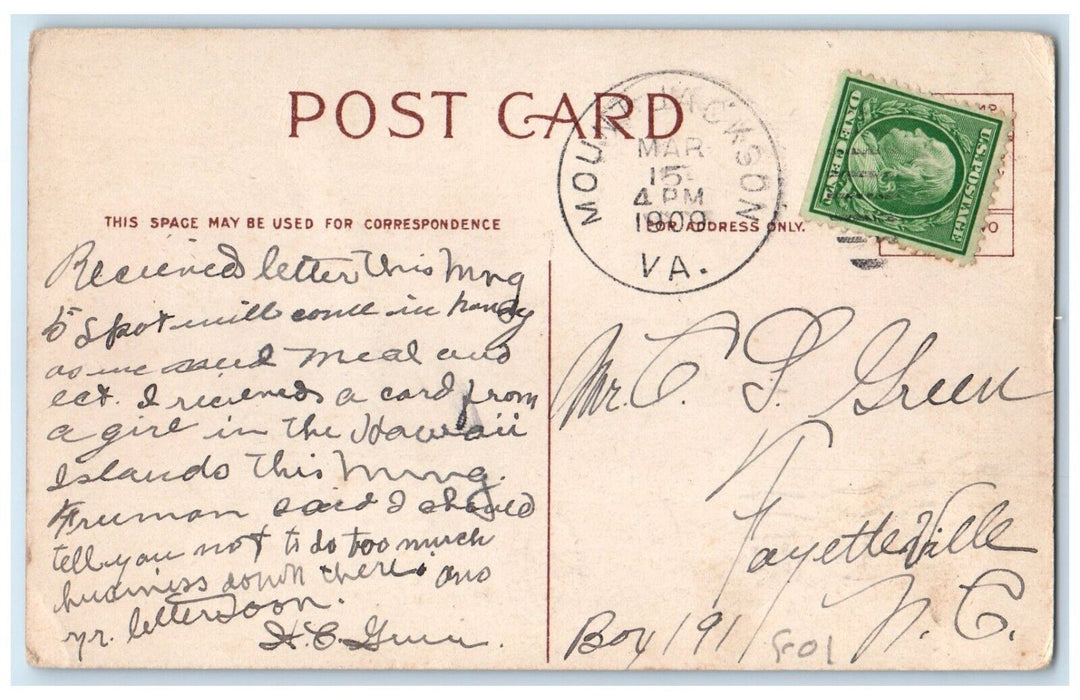 POST CARD
MOUNT JACKSON
MAR
15
4 PM
1909
VA.
ONE CENT
U.S. POSTAGE
THIS SPACE MAY BE USED FOR CORRESPONDENCE
FOR ADDRESS ONLY.
Recieved letter this Mrng
5 Spot will come in handy
as we need meal and
ect. I recieved a card from
a girl in the Hawaii
Islands this Mrng.
Truman said I should
tell you not to do too much
business down there. ans
yr. letter soon.
H. C.
Mr. C. Green
Fayetteville
N.C.
Box 191